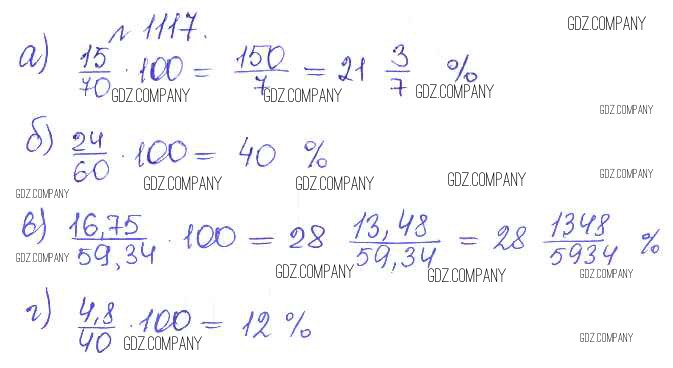 № 1117.
GDZ.COMPANY
а) 15/70 · 100 = 150/7 = 21 3/7 %
GDZ.COMPANY GDZ.COMPANY GDZ.COMPANY
GDZ.COMPANY
б) 24/60 · 100 = 40 %
GDZ.COMPANY GDZ.COMPANY GDZ.COMPANY GDZ.COMPANY
GDZ.COMPANY
в) 16,75/59,34 · 100 = 28 13,48/59,34 = 28 1348/5934 %
GDZ.COMPANY GDZ.COMPANY GDZ.COMPANY GDZ.COMPANY
г) 4,8/40 · 100 = 12 %
GDZ.COMPANY GDZ.COMPANY